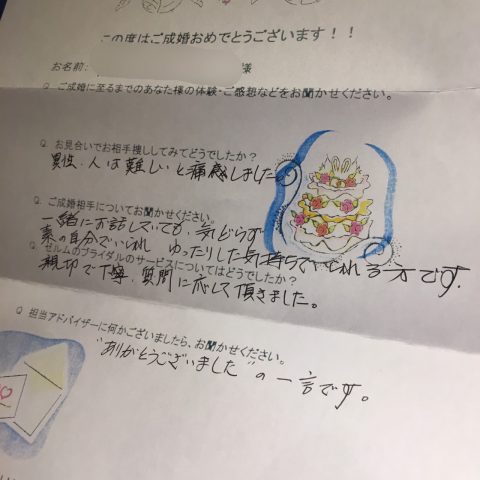 この度はご成婚おめでとうございます！！
お名前: 様
Q ご成婚に至るまでのあなた様の体験・ご感想などをお聞かせください。
Q お見合いでお相手捜ししてみてどうでしたか？
男性、人は難しいと痛感しました。
Q ご成婚相手についてお聞かせください。
一緒にお話していても、気どらず
素の自分でいられ ゆったりした気持ちでいられる方です。
Q ゼルムのブライダルのサービスについてはどうでしたか？
親切で丁寧、質問に応じて頂きました。
Q 担当アドバイザーに何かございましたら、お聞かせください。
"ありがとうございました"の一言です。